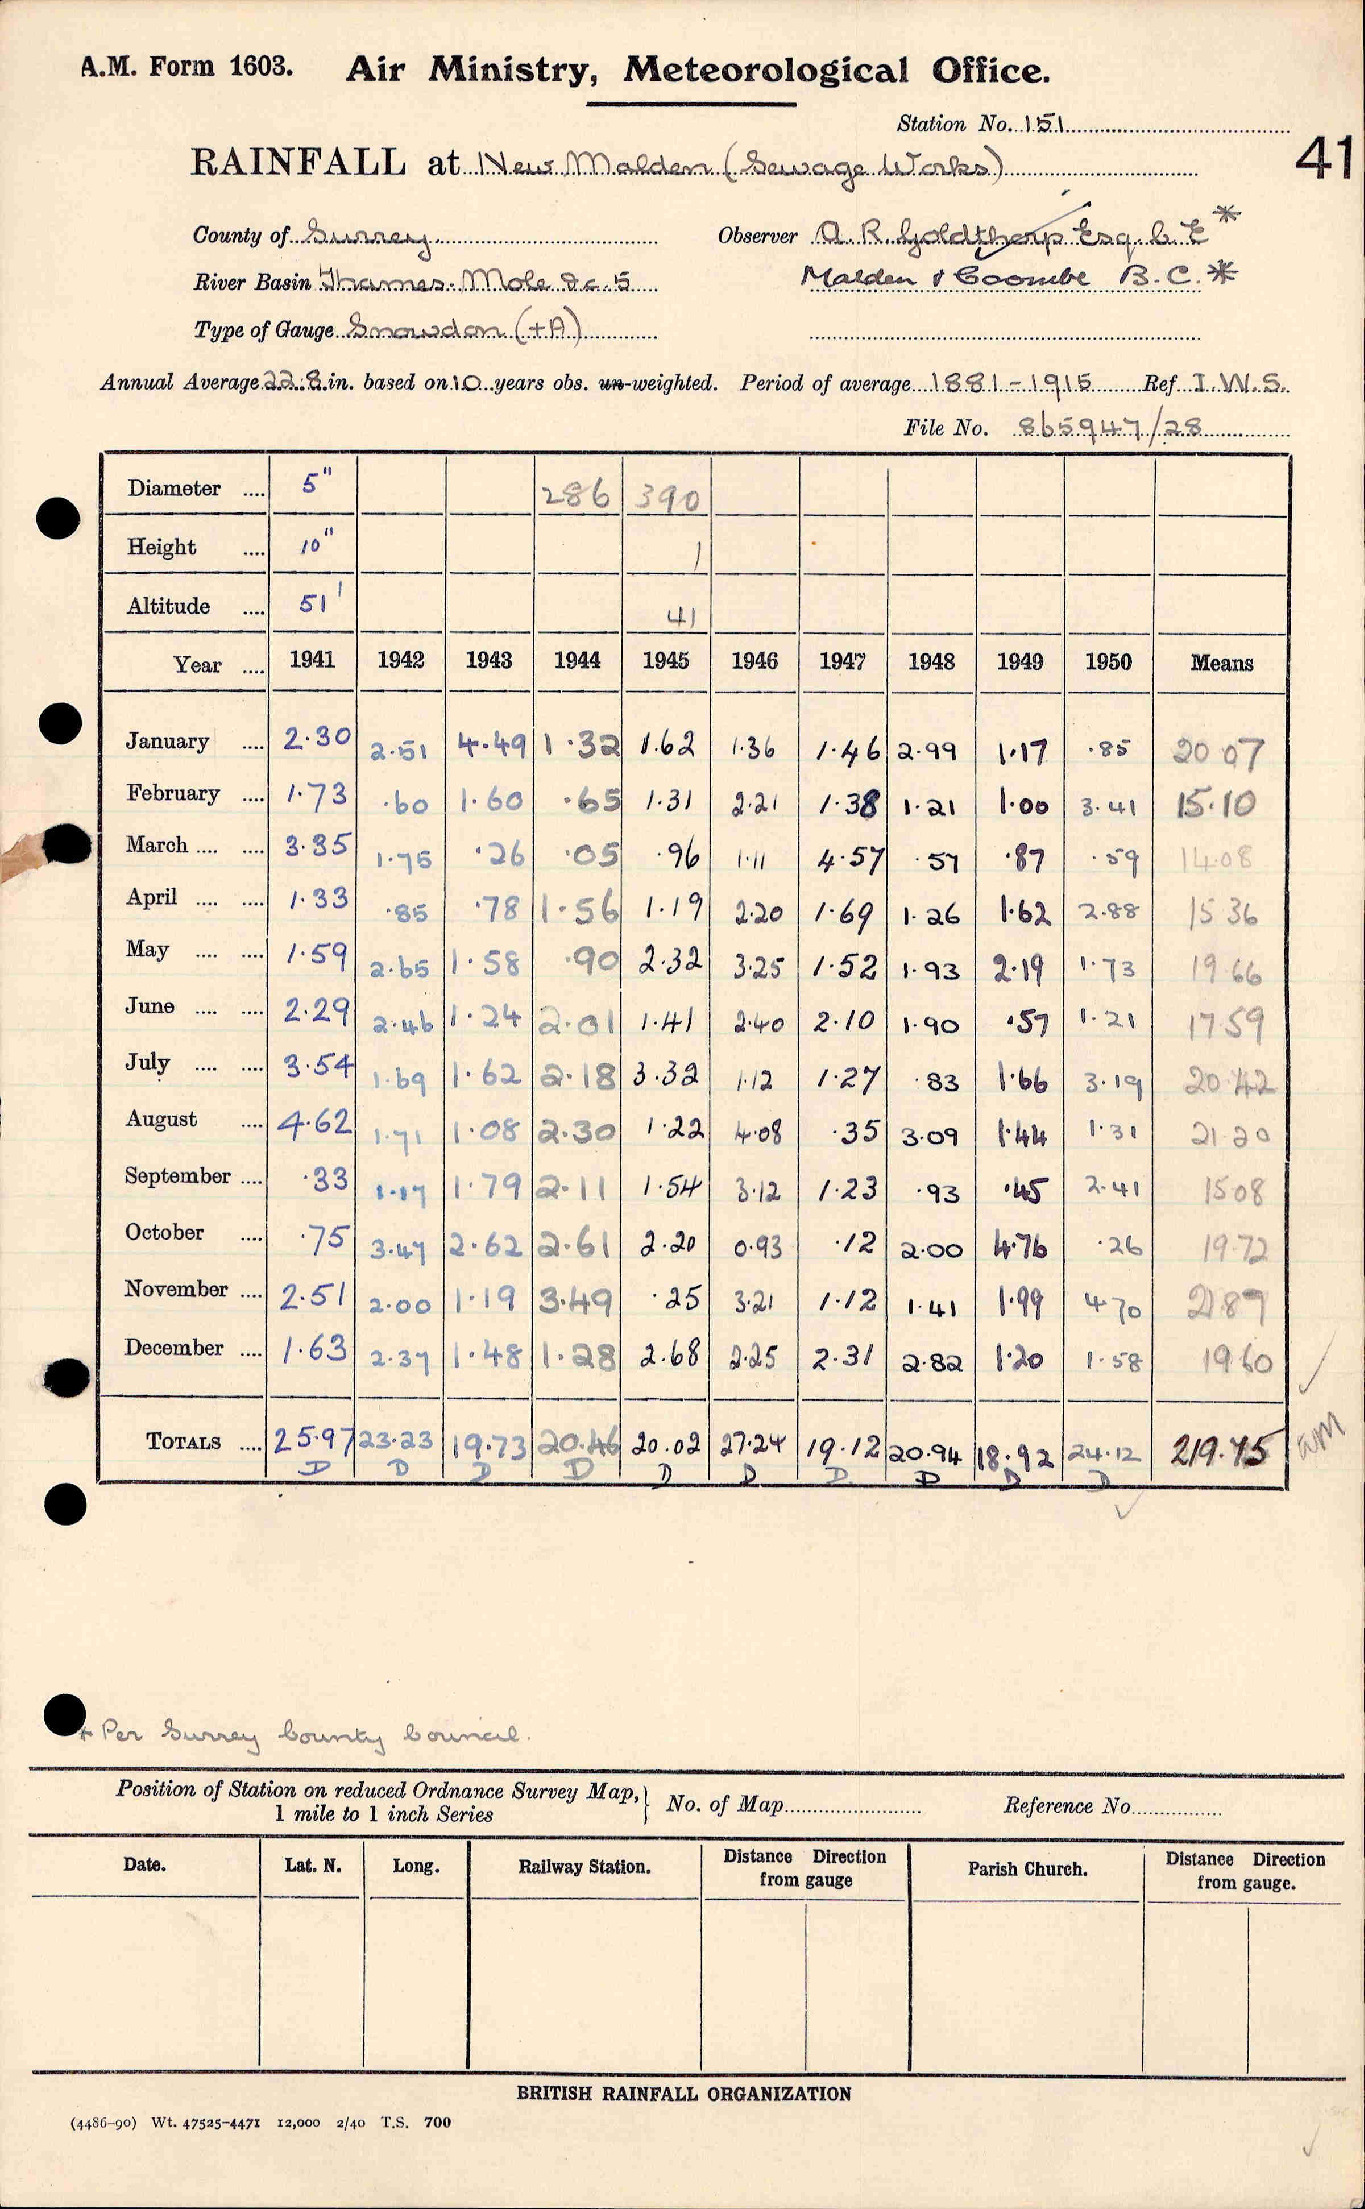 A.M. Form 1603. Air Ministry, Meteorological Office.
Station No. 151
41
RAINFALL at New Malden (Sewage Works)
County of Surrey Observer A. R. Goldthorp Esq. C. E *
River Basin Thames. Mole &c. 5 Malden & Coombe B.C. *
Type of Gauge Snowdon (+A)
Annual Average 22.8 in. based on 10 years obs. un-weighted. Period of average 1881-1915 Ref I.W.S.
File No. 865947/28
Diameter .... 5" 286 390
Height .... 10" 1
Altitude .... 51' 41
Year .... 1941 1942 1943 1944 1945 1946 1947 1948 1949 1950 Means
January .... 2.30 2.51 4.49 1.32 1.62 1.36 1.46 2.99 1.17 .85 20.07
February .... 1.73 .60 1.60 .65 1.31 2.21 1.38 1.21 1.00 3.41 15.10
March .... .... 3.35 1.75 .26 .05 .96 1.11 4.57 .57 .87 .59 14.08
April .... .... 1.33 .85 .78 1.56 1.19 2.20 1.69 1.26 1.62 2.88 15.36
May .... .... 1.59 2.65 1.58 .90 2.32 3.25 1.52 1.93 2.19 1.73 19.66
June .... .... 2.29 2.46 1.24 2.01 1.41 2.40 2.10 1.90 .57 1.21 17.59
July .... .... 3.54 1.69 1.62 2.18 3.32 1.12 1.27 .83 1.66 3.19 20.42
August .... 4.62 1.71 1.08 2.30 1.22 4.08 .35 3.09 1.44 1.31 21.20
September .... .33 1.17 1.79 2.11 1.54 3.12 1.23 .93 .45 2.41 15.08
October .... .75 3.47 2.62 2.61 2.20 0.93 .12 2.00 4.76 .26 19.72
November .... 2.51 2.00 1.19 3.49 .25 3.21 1.12 1.41 1.99 4.70 21.87
December .... 1.63 2.37 1.48 1.28 2.68 2.25 2.31 2.82 1.20 1.58 19.60
TOTALS .... 25.97 23.23 19.73 20.46 20.02 27.24 19.12 20.94 18.92 24.12 219.75
D D D D D D D D D D
* Per Surrey County Council.
Position of Station on reduced Ordnance Survey Map, } No. of Map Reference No.
1 mile to 1 inch Series
Date. Lat. N. Long. Railway Station. Distance Direction from gauge Parish Church. Distance Direction from gauge.
BRITISH RAINFALL ORGANIZATION
(4486-90) Wt. 47525-4471 12,000 2/40 T.S. 700